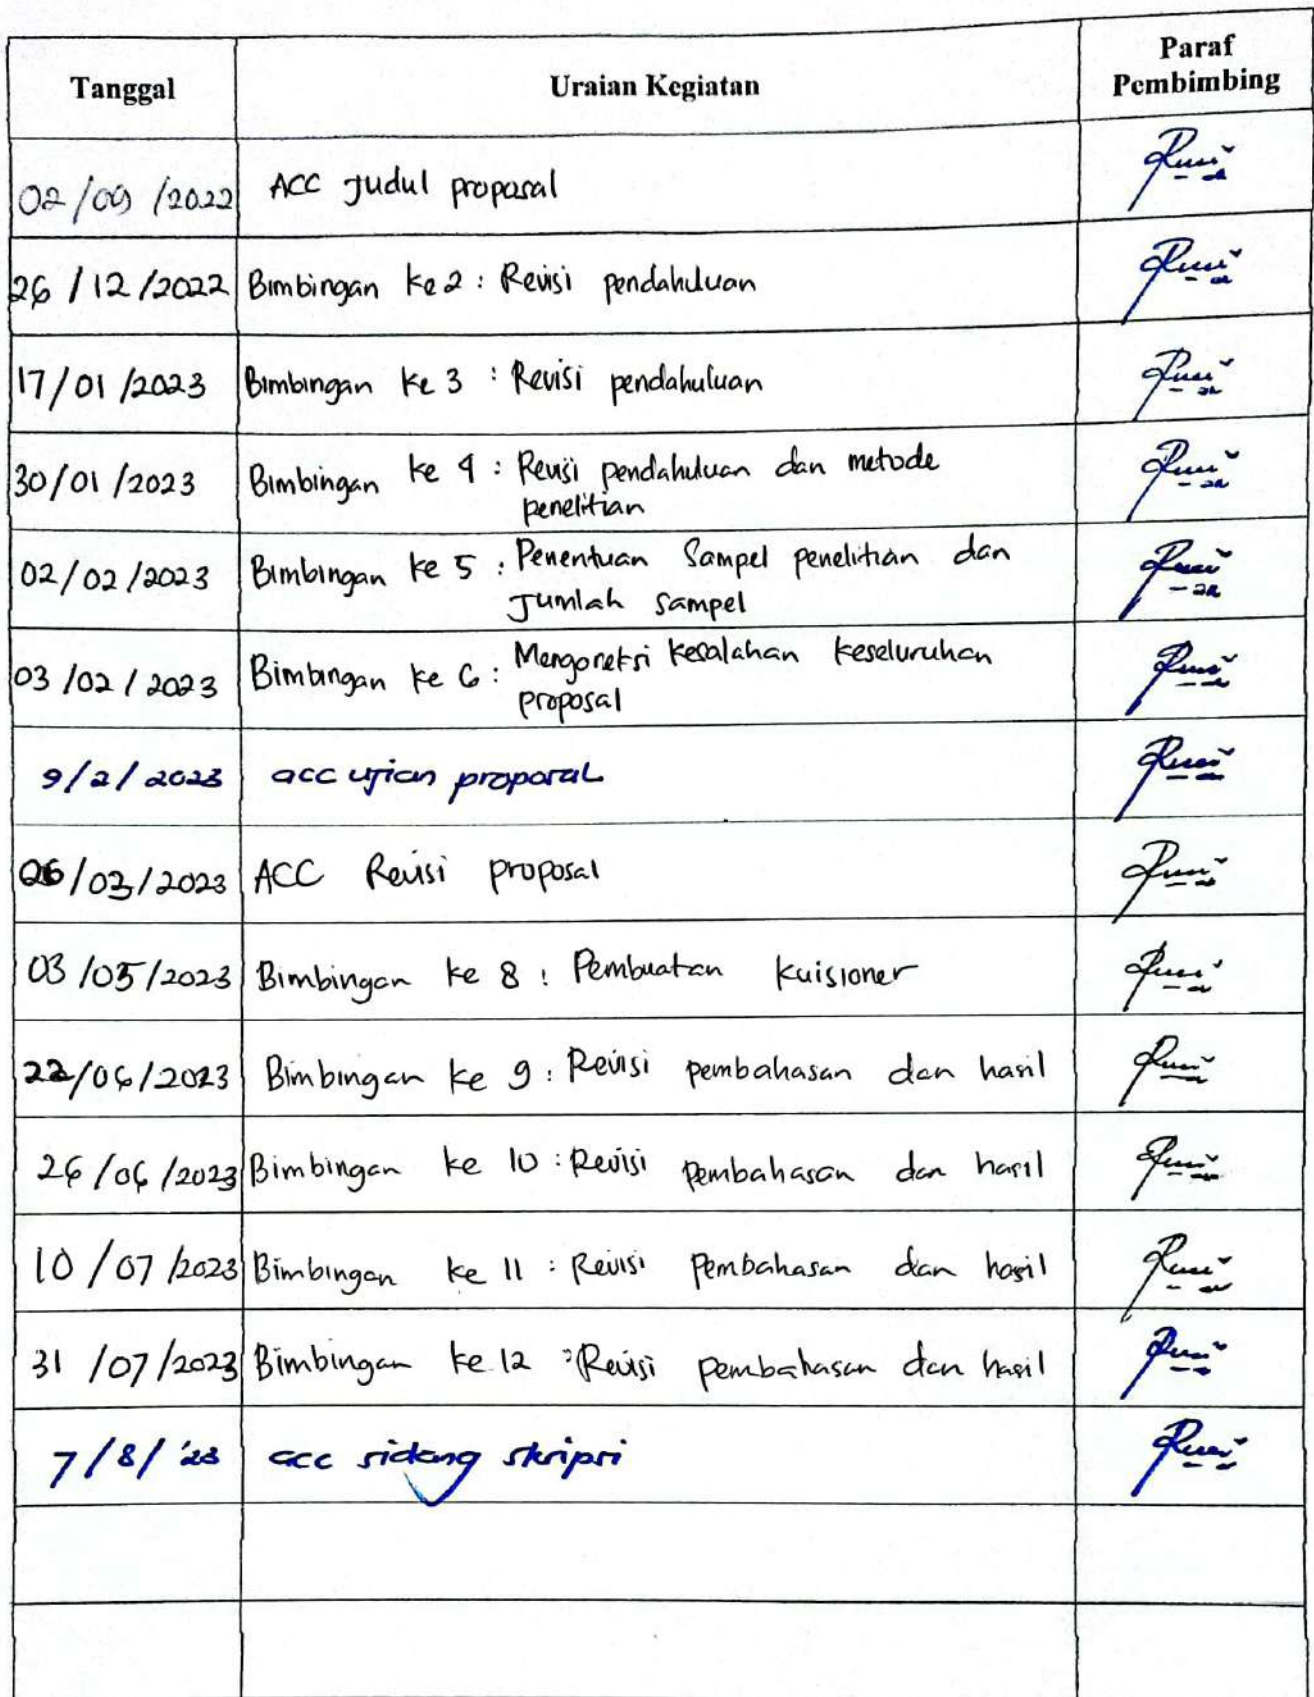 Tanggal Uraian Kegiatan Paraf
Pembimbing
02/09/2022 ACC Judul proposal
26/12/2022 Bimbingan ke 2 : Revisi pendahuluan
17/01/2023 Bimbingan ke 3 : Revisi pendahuluan
30/01/2023 Bimbingan ke 4 : Revisi pendahuluan dan metode
penelitian
02/02/2023 Bimbingan ke 5 : Penentuan Sampel penelitian dan
Jumlah sampel
03/02/2023 Bimbingan ke 6 : Mengoreksi kesalahan keseluruhan
proposal
9/2/2023 acc ujian proposal
06/03/2023 ACC Revisi proposal
03/05/2023 Bimbingan ke 8 : Pembuatan kuisioner
22/06/2023 Bimbingan ke 9 : Revisi pembahasan dan hasil
26/06/2023 Bimbingan ke 10 : Revisi pembahasan dan hasil
10/07/2023 Bimbingan ke 11 : Revisi Pembahasan dan hasil
31/07/2023 Bimbingan ke 12 : Revisi pembahasan dan hasil
7/8/'23 acc sidang skripsi